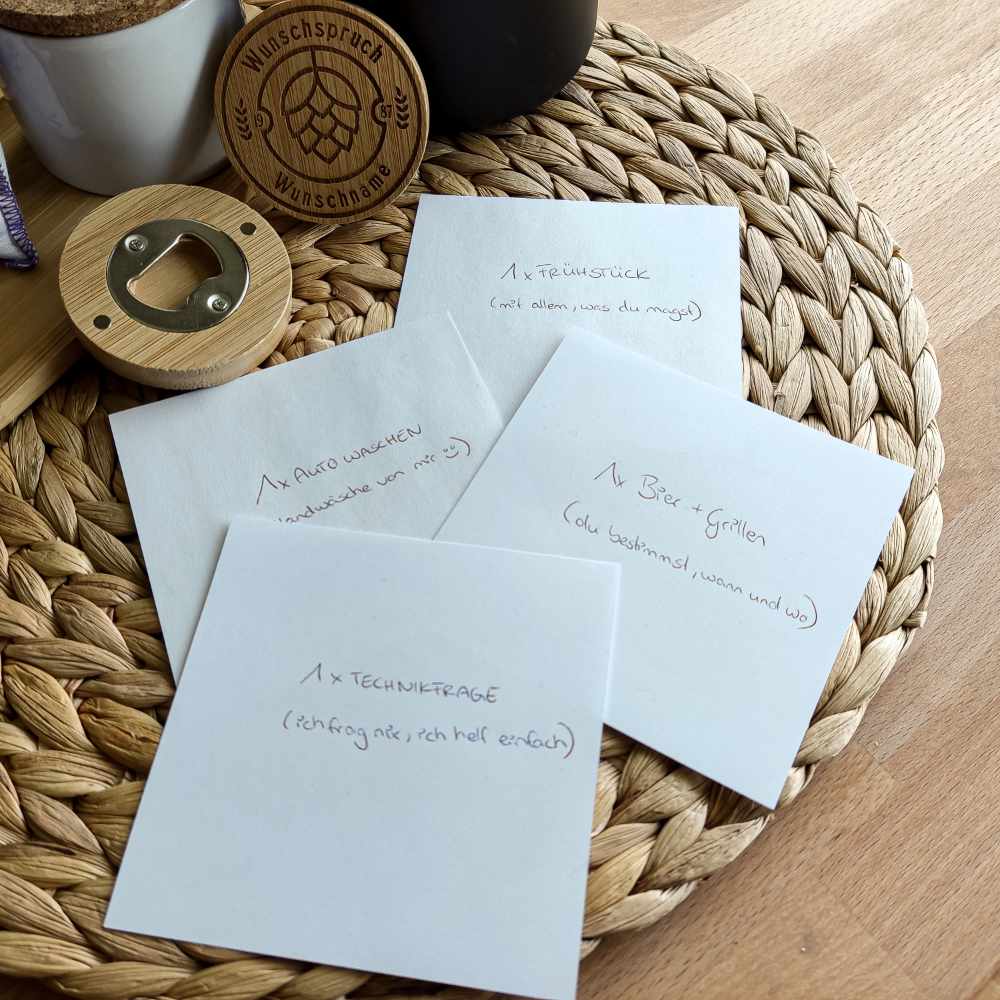 Wunschspruch
19 87
Wunschname
1 x FRÜHSTÜCK
(mit allem, was du magst)
1 x AUTO WASCHEN
Handwäsche von mir ☺)
1x Bier + Grillen
(du bestimmst, wann und wo)
1 x TECHNIKFRAGE
(ich frag nix, ich helf einfach)